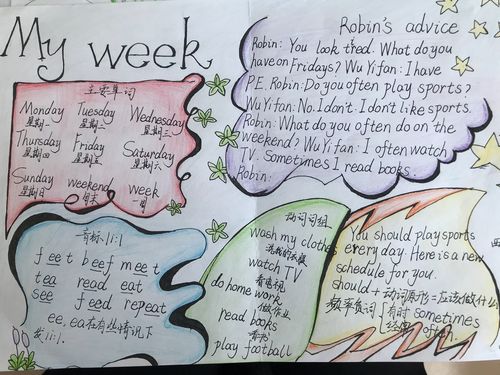 My week
主要单词
Monday Tuesday Wednesday
星期一 星期二 星期三
Thursday Friday Saturday
星期四 星期五 星期六
Sunday weekend week
星期日 周末 一周
Robin's advice
Robin: You look tired. What do you
have on Fridays? Wu Yifan: I have
P.E. Robin: Do you often play sports?
Wu Yifan: No. I don't. I don't like sports.
Robin: What do you often do on the
weekend? Wu Yifan: I often watch
TV. Sometimes I read books.
Robin:
音标/i:/
feet beef meet
tea read eat
see feed repeat
ee, ea在有些情况下
发/i:/.
动词词组
wash my clothes
洗我的衣服
watch TV
看电视
do homework
做作业
read books
看书
play football
You should play sports
every day. Here is a new
schedule for you.
should + 动词原形=应该做什么
频率负词 有时 sometimes
经常 often.